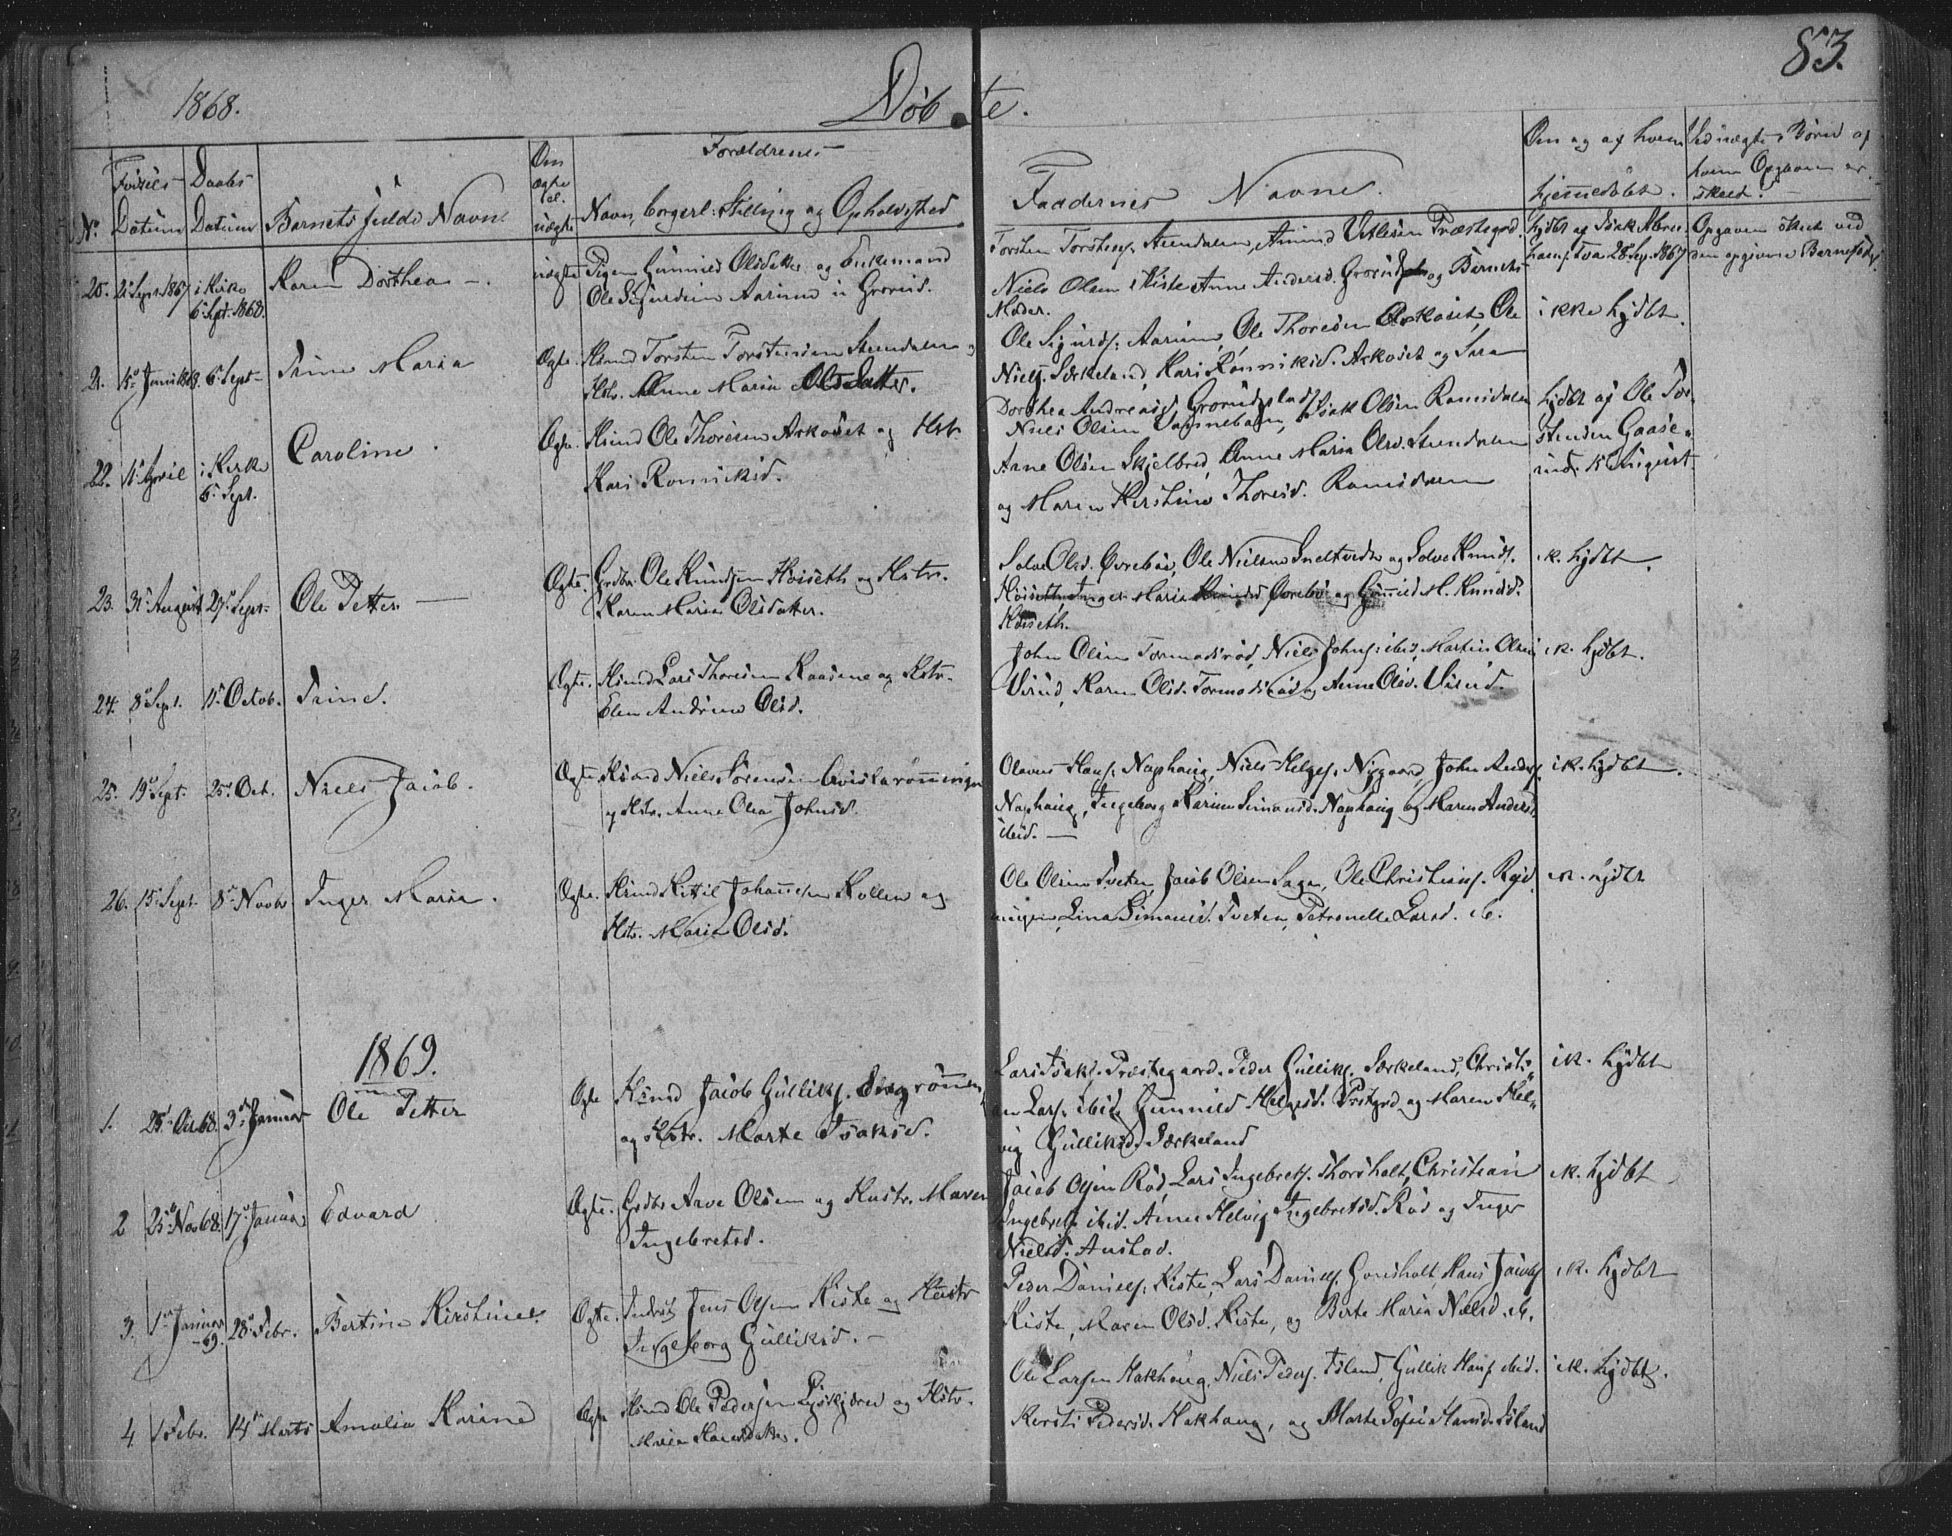 83.
1868.
Døbte.
No.
Fødsels Datum
Daabs Datum
Barnets fulde Navn
Om ægte el. uægte
Forældrenes
Navn, borgerl. Stilling og Opholdsted
Faddernes Navne.
Om og af hvem hjemmedøbt.
Ved uægte Børn af hvem Opgaven er skeet.
20. 21 Sept. 1867 i Kirke 6 Sept. 1868. Karen Dorthea —. uægte Pigen Gunnild Olsdatter og Enkemand
Ole Sigurdsen Aarum i Grorud.
Torsten Torstens. Steendalen, Amund Vetlesen Præstegrd.
Niels Olsen Kiste Anne Andersd. Grorud og Barnets
Moder.
hjdbt af Isak Abra-
hams. Tva 28 Sep. 1867
Opgaven skeet ved
den opgivne Barnefader
21. 15 Juni 1868. 6 Sept. Trine Maria Ægte. Hsmd Torsten Torstensen Steendalen og
Hstr. Anne Maria Olsdatter.
Ole Sigurds. Aarum, Ole Thoresen Askoset, Ole
Niels. Sørkeland, Kari Rønnikid. Askoset og Sara
Dorthea Andreasd. Grorudplads
ikke hjdbt.
22. 11 April i Kirke 6 Sept. Caroline. Ægte. Hsmd Ole Thoresen Askoset og Hstr.
Kari Ronnikid.
Niels Olsen Vannebaen, Isak Olsen Ramsdalen
Arne Olsen Skjelbred, Anne Maria Olsd. Steendalen
og Maren Kirstine Thoresd. Ramsdalen
hjdbt af Ole Tor-
stensen Gaase-
rud. 15 August.
23. 31 August 27 Sept. Ole Petter — Ægte. Grdbr. Ole Knudsen Høiseth og Hstr.
Karen Maria Olsdatter.
Solve Olsd. Øvrebøe, Ole Nielsen Sneltvedt og Solve Knuds.
Høiseth, Inger Maria Øvrebø og Gunnild M. Knudsd.
Høiseth.
ik. hjdbt.
24. 8 Sept. 11 Octob. Trine. Ægte. Hsmd Lars Thoresen Raasene og Hstr.
Elen Andrine Olsd.
John Olsen Tormodsrød, Niels Johns. ibid, Martin Olsen
Ulsrud, Karen Olsd. Tormodsrød og Anne Olsd. Ulsrud.
ik. hjdbt.
25. 19 Sept. 25 Oct. Niels Jacob. Ægte. Hsmd Niels Sørensen
og Hstr. Anne Olea Johnsd.
Olaves Hans. Naphaug, Niels Helges. Nygaard, John Anders.
Naphaug, Ingeborg Karine Simonsd. Naphaug og Maren Andersd.
ibid. —
ik. hjdbt.
26. 15 Sept. 8 Novbr. Inger Maria. Ægte. Hsmd Kittil Johannesen Kollen og
Hstr. Maria Olsd.
Ole Olsen Tveten, Jacob Olsen Sagen, Ole Christians. Ryd-
ningen, Lina Simonsd. Tveten, Petronelle Larsd. ib.
ik. hjdbt
1869.
1. 25 Oct 68. 3 Januar Ole Petter Ægte Hsmd Jacob Gulliks.
og Hstr. Marte Isaksd.
Lars Isaks. Præstegaard. Peder Gulliks. Sørkeland, Christi-
an Lars. ibid, Gunnild Helgesd. Prstgrd og Maren Hel-
vig Gulliksd. Sørkeland
ik. hjdbt
2 25 Nov 68. 17 Januar Edvard Ægte. Grdbr Arve Olsen og Hustr. Maren
Ingebretsd.
Jacob Olsen Rød, Lars Ingebrets. Thorsholt, Christian
Ingebrets. ibid. Anne Helvig Ingebretsd. Rød og Inger
Nielsd. Austad.
ik. hjdbt
3. 1 Januar 69. 28 Febr. Bertine Kirstine. Ægte. Inderst Jens Olsen Kiste og Hustr
Ingeborg Gulliksd. —
Peder Daniels. Kiste, Lars Daniels. Gonsholt, Hans Jacobs.
Kiste, Maren Olsd. Kiste, og Berte Maria Nielsd. ib.
ik. hjdbt
4. 1 Febr. 14 Marts Amalia Karine Ægte Hsmd Ole Pedersen og Hstr.
Maren Hansdatter.
Ole Larsen Hakhaug, Niels Peders. Island, Gullik Hans. ibid.
Kersti Pedersd. Hakhaug, og Marte Sofie Hansd. Island
ik. hjdbt.